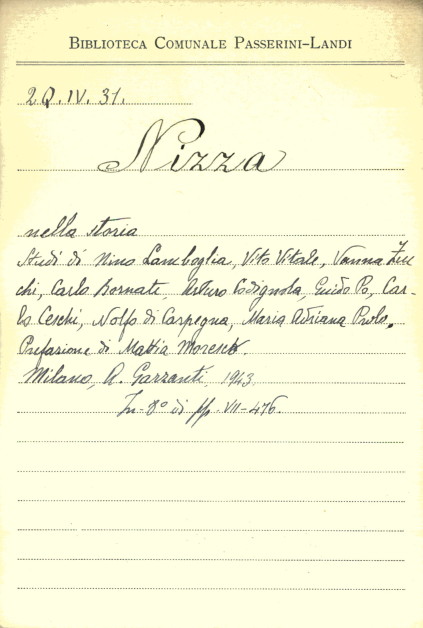 BIBLIOTECA COMUNALE PASSERINI-LANDI
2Q. IV. 31.
Nizza
nella storia
Studi di Nino Lamboglia, Vito Vitale, Vanna Zuc
chi, Carlo Bornate, Arturo Codignola, Guido Po, Car-
lo Ceschi, Nolfo di Carpegna, Maria Adriana Prolo.
Prefazione di Mattia Moresco.
Milano, A. Garzanti, 1943.
In-8° di pp. VII-476.